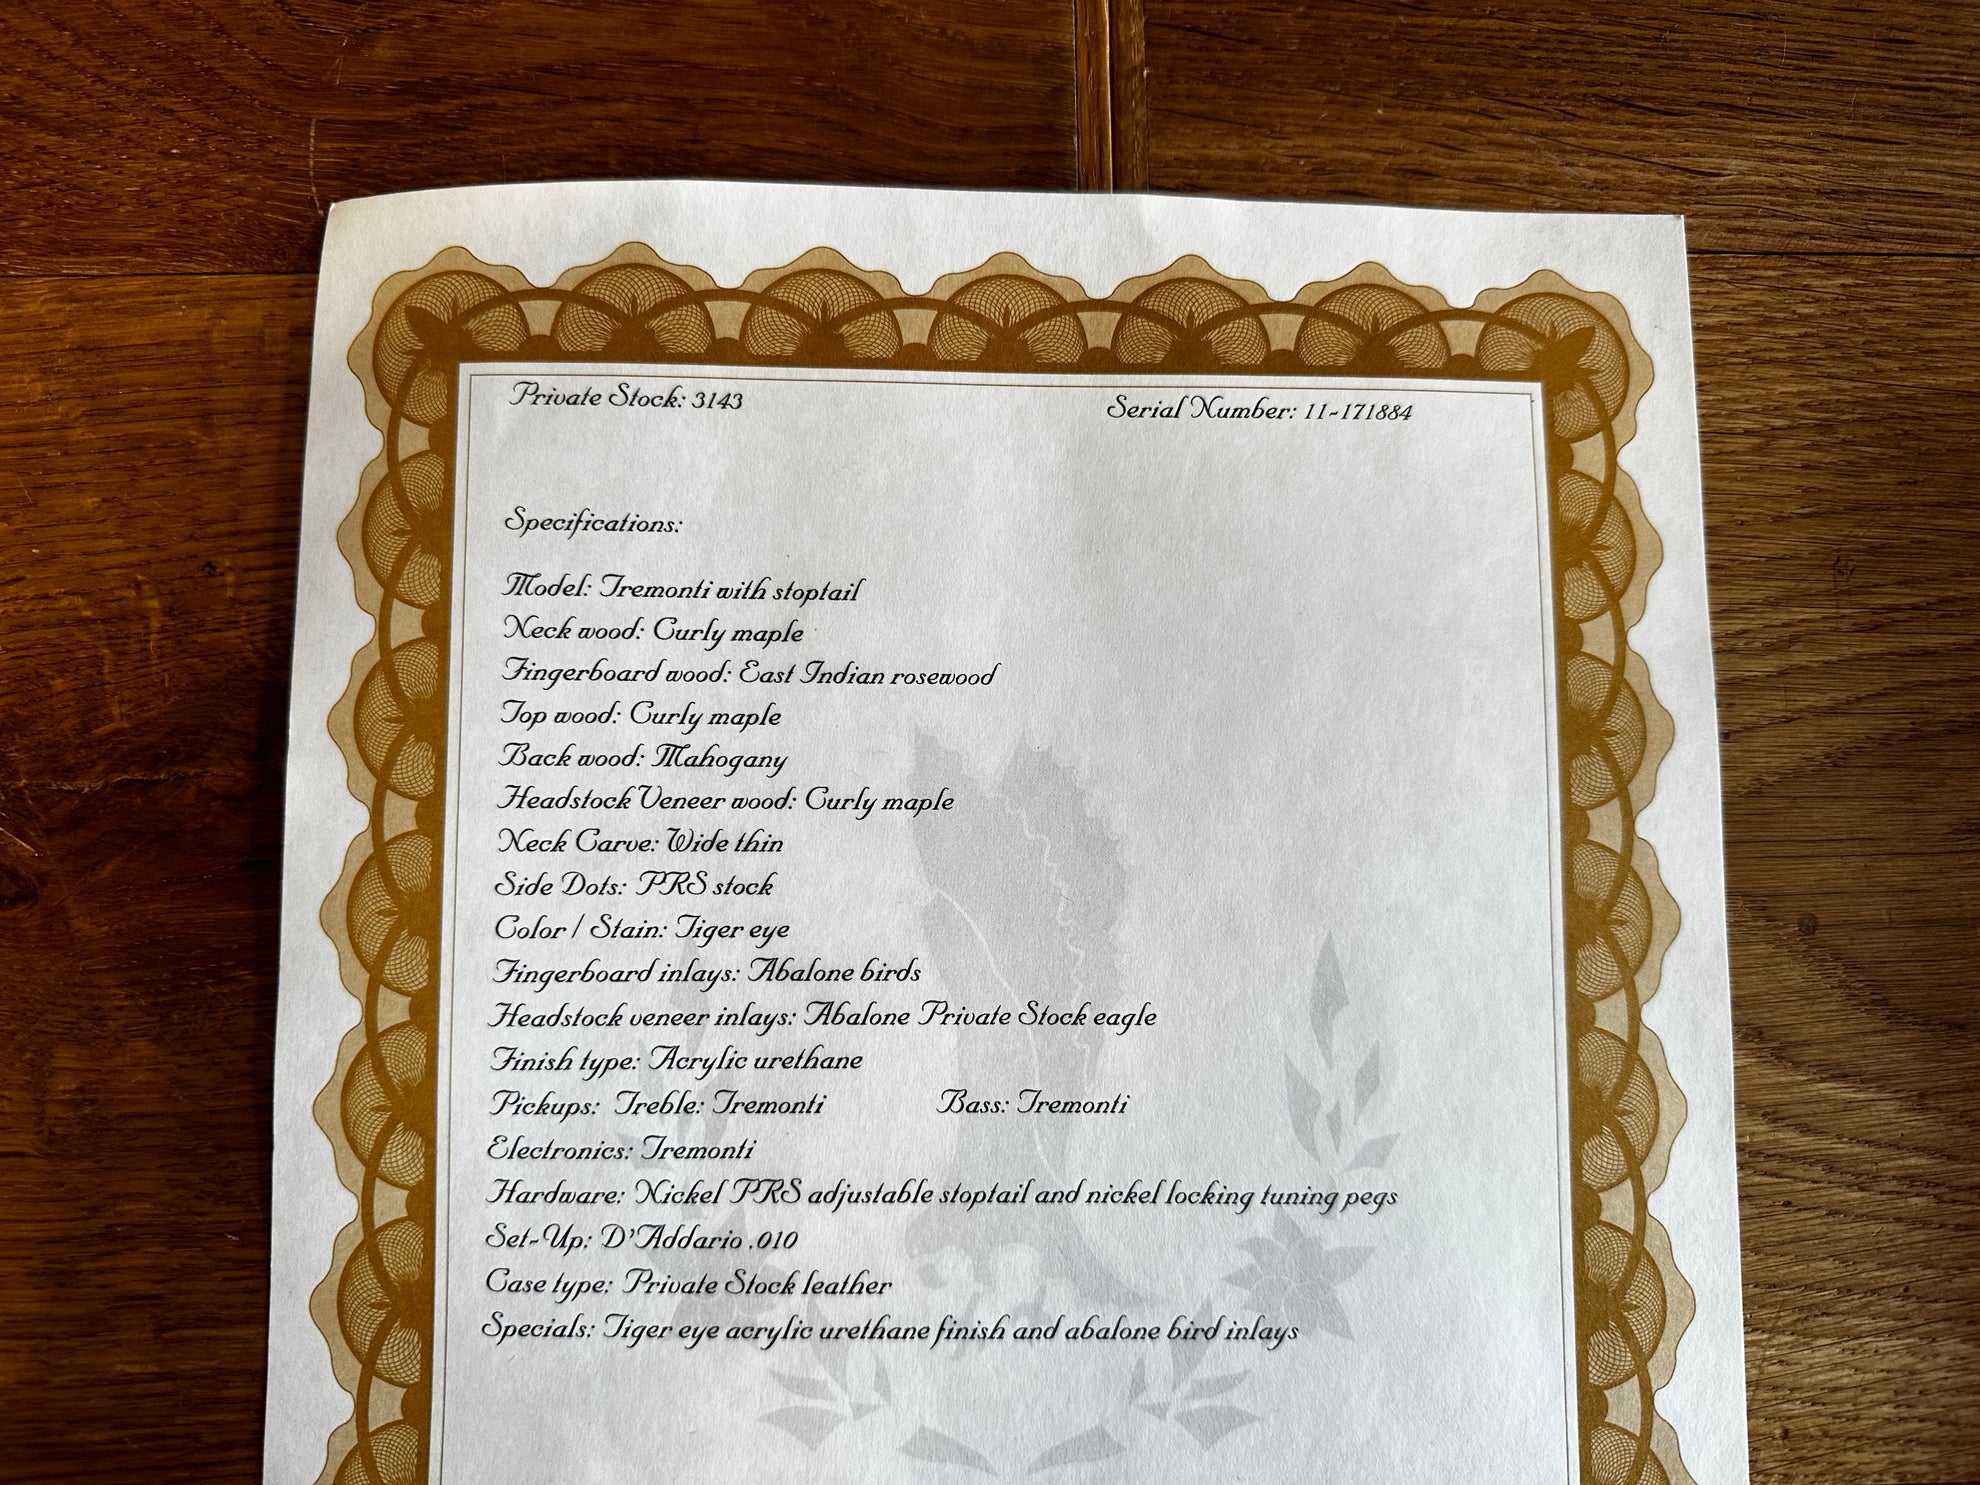 Private Stock: 3143 Serial Number: 11-171884
Specifications:
Model: Tremonti with stoptail
Neck wood: Curly maple
Fingerboard wood: East Indian rosewood
Top wood: Curly maple
Back wood: Mahogany
Headstock Veneer wood: Curly maple
Neck Carve: Wide thin
Side Dots: PRS stock
Color / Stain: Tiger eye
Fingerboard inlays: Abalone birds
Headstock veneer inlays: Abalone Private Stock eagle
Finish type: Acrylic urethane
Pickups: Treble: Tremonti Bass: Tremonti
Electronics: Tremonti
Hardware: Nickel PRS adjustable stoptail and nickel locking tuning pegs
Set-Up: D'Addario .010
Case type: Private Stock leather
Specials: Tiger eye acrylic urethane finish and abalone bird inlays